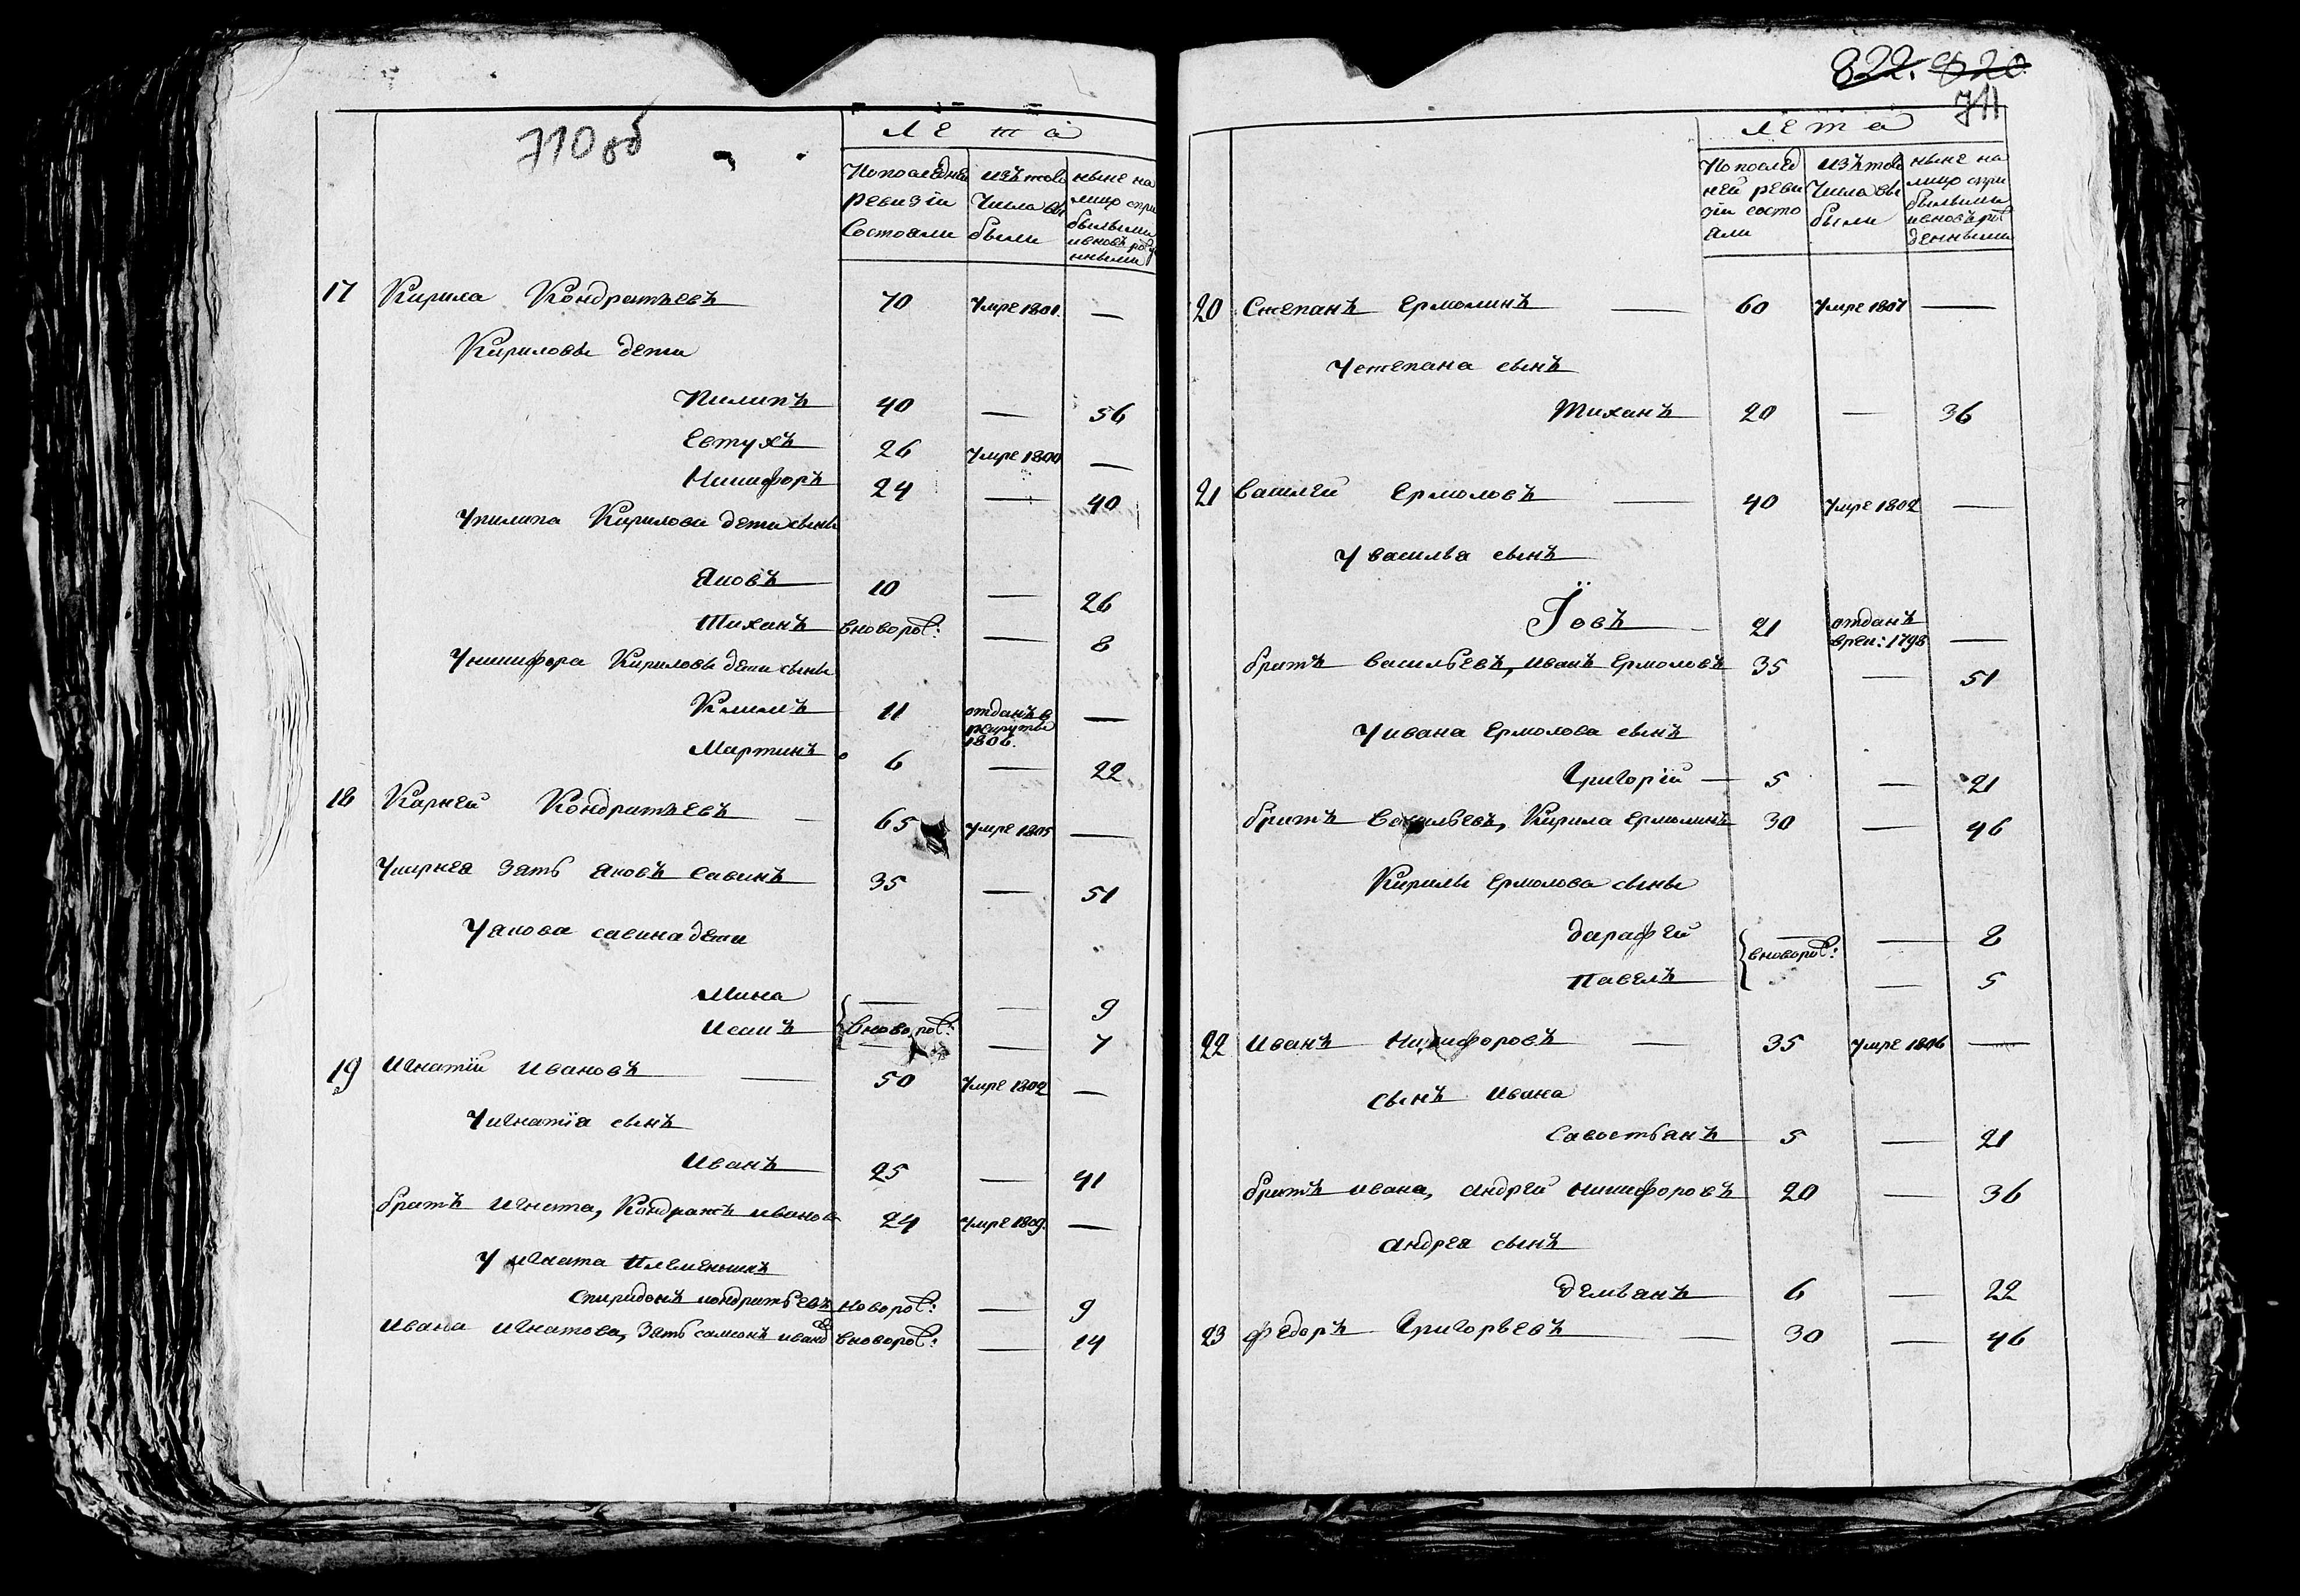 710 об
Лета
По последней ревизии состояли
изъ того числа выбыли
ныне на лицо с прибылыми и вновь рожденными
17 Кирила Кондратьевъ 70 Умре 1801. —
Кириловы дети
Пилипъ 40 — 56
Евтухъ 26 Умре 1800 —
Никифоръ 24 — 40
У пилипа Кирилова дети сыны
Яковъ 10 — 26
Тиханъ вноворож: — 8
У никифора Кирилова дети сыны
Климъ 11 отданъ в рекруты 1806. —
Мартинъ 6 — 22
18 Карней Кондратьевъ — 65 Умре 1805 —
У карнея зять Яковъ Савинъ 35 — 51
У якова савина дети
Мина — 9
Исакъ { вноворож: — 7
19 Игнатій Ивановъ — 50 Умре 1802 —
У игнатія сынъ
Иванъ 25 — 41
братъ Игната, Кондратъ иванов 24 Умре 1809. —
У игната племеникъ
Спиридонъ кондратьевъ новорож: — 9
Ивана Игнатова, зять самсонъ иванов вноворож: — 14
822. 820
711
Лета
По последней ревизіи состояли
изъ того числа выбыли
ныне на лицо с прибылыми и вновь рожденными
20 Степанъ Ермолинъ — 60 Умре 1807 —
У степана сынъ
Тиханъ 20 — 36
21 Василей Ермоловъ — 40 Умре 1802 —
У василья сынъ
Іовъ 21 отданъ в рек: 1798 —
братъ Васильевъ, иванъ Ермоловъ 35 — 51
У ивана Ермолова сынъ
Григорій — 5 — 21
братъ Васильевъ, Кирила Ермолинъ 30 — 46
Кирилы Ермолова сыны
Дарафей — 8
Павелъ { вноворож: — 5
22 Иванъ Никифоровъ — 35 Умре 1806 —
сынъ Ивана
Савостьянъ 5 — 21
братъ ивана, андрей никифоровъ 20 — 36
андрея сынъ
Демьянъ 6 — 22
23 Федоръ Григорьевъ — 30 — 46